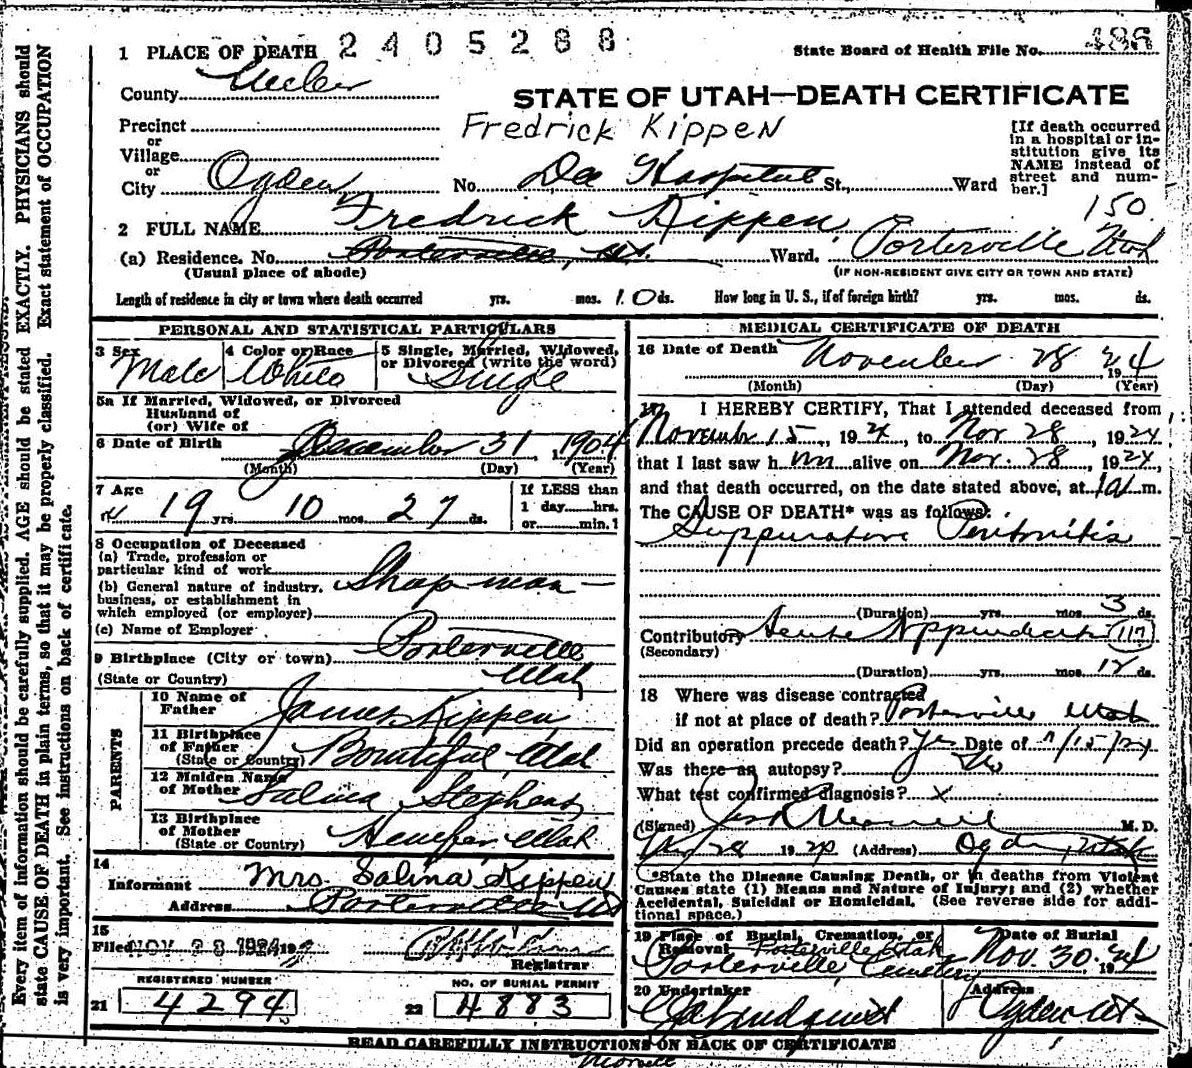 1 PLACE OF DEATH 2405288 State Board of Health File No. 486
County Weber
STATE OF UTAH—DEATH CERTIFICATE
Precinct
or
Village
or
City Ogden No. Dee Hospital St., Ward
Fredrick Kippen
[If death occurred
in a hospital or in-
stitution give its
NAME instead of
street and num-
ber.]
150
2 FULL NAME Fredrick Kippen
(a) Residence. No. Porterville, Ut. Ward. Porterville Utah
(Usual place of abode) (IF NON-RESIDENT GIVE CITY OR TOWN AND STATE)
Length of residence in city or town where death occurred yrs. mos. 10 ds. How long in U. S., if of foreign birth? yrs. mos. ds.
PERSONAL AND STATISTICAL PARTICULARS
3 Sex Male
4 Color or Race White
5 Single, Married, Widowed,
or Divorced (write the word)
Single
5a If Married, Widowed, or Divorced
Husband of
(or) Wife of
6 Date of Birth December 31 1904
(Month) (Day) (Year)
7 Age 19 yrs 10 mos 27 ds.
If LESS than
1 day hrs
or min.?
8 Occupation of Deceased
(a) Trade, profession or
particular kind of work
(b) General nature of industry,
business, or establishment in
which employed (or employer)
(c) Name of Employer
9 Birthplace (City or town) Porterville
(State or Country) Utah
PARENTS
10 Name of
Father James Kippen
11 Birthplace
of Father
(State or Country) Bountiful, Utah
12 Maiden Name
of Mother Salina Stephens
13 Birthplace
of Mother
(State or Country) Henefer, Utah
14
Informant Mrs. Salina Kippen
Address Porterville Ut
15
Filed NOV 28 1924 19
Registrar
REGISTERED NUMBER NO. OF BURIAL PERMIT
21 4294 22 4883
MEDICAL CERTIFICATE OF DEATH
16 Date of Death November 28 1924
(Month) (Day) (Year)
17 I HEREBY CERTIFY, That I attended deceased from
November 15, 1924, to Nov 28, 1924
that I last saw him alive on Nov. 28, 1924,
and that death occurred, on the date stated above, at m.
The CAUSE OF DEATH* was as follows:
Suppurative Peritonitis
(Duration) yrs. mos. 3 ds.
Contributory Acute Appendicitis 117
(Secondary)
(Duration) yrs. mos. 12 ds.
18 Where was disease contracted
if not at place of death? Porterville Utah
Did an operation precede death? Yes Date of 11/15/24
Was there an autopsy? No
What test confirmed diagnosis? x
(Signed) M. D.
28 19 (Address) Ogden, Utah
*State the Disease Causing Death, or in deaths from Violent
Causes state (1) Means and Nature of Injury; and (2) whether
Accidental, Suicidal or Homicidal. (See reverse side for addi-
tional space.)
19 Place of Burial, Cremation, or
Removal Porterville Utah
Porterville Cemetery
Date of Burial
Nov. 30 1924
20 Undertaker
Lindquist
Address
Ogden Ut
READ CAREFULLY INSTRUCTIONS ON BACK OF CERTIFICATE
Every item of information should be carefully supplied. AGE should be stated EXACTLY. PHYSICIANS should
state CAUSE OF DEATH in plain terms, so that it may be properly classified. Exact statement of OCCUPATION
is very important. See instructions on back of certificate.